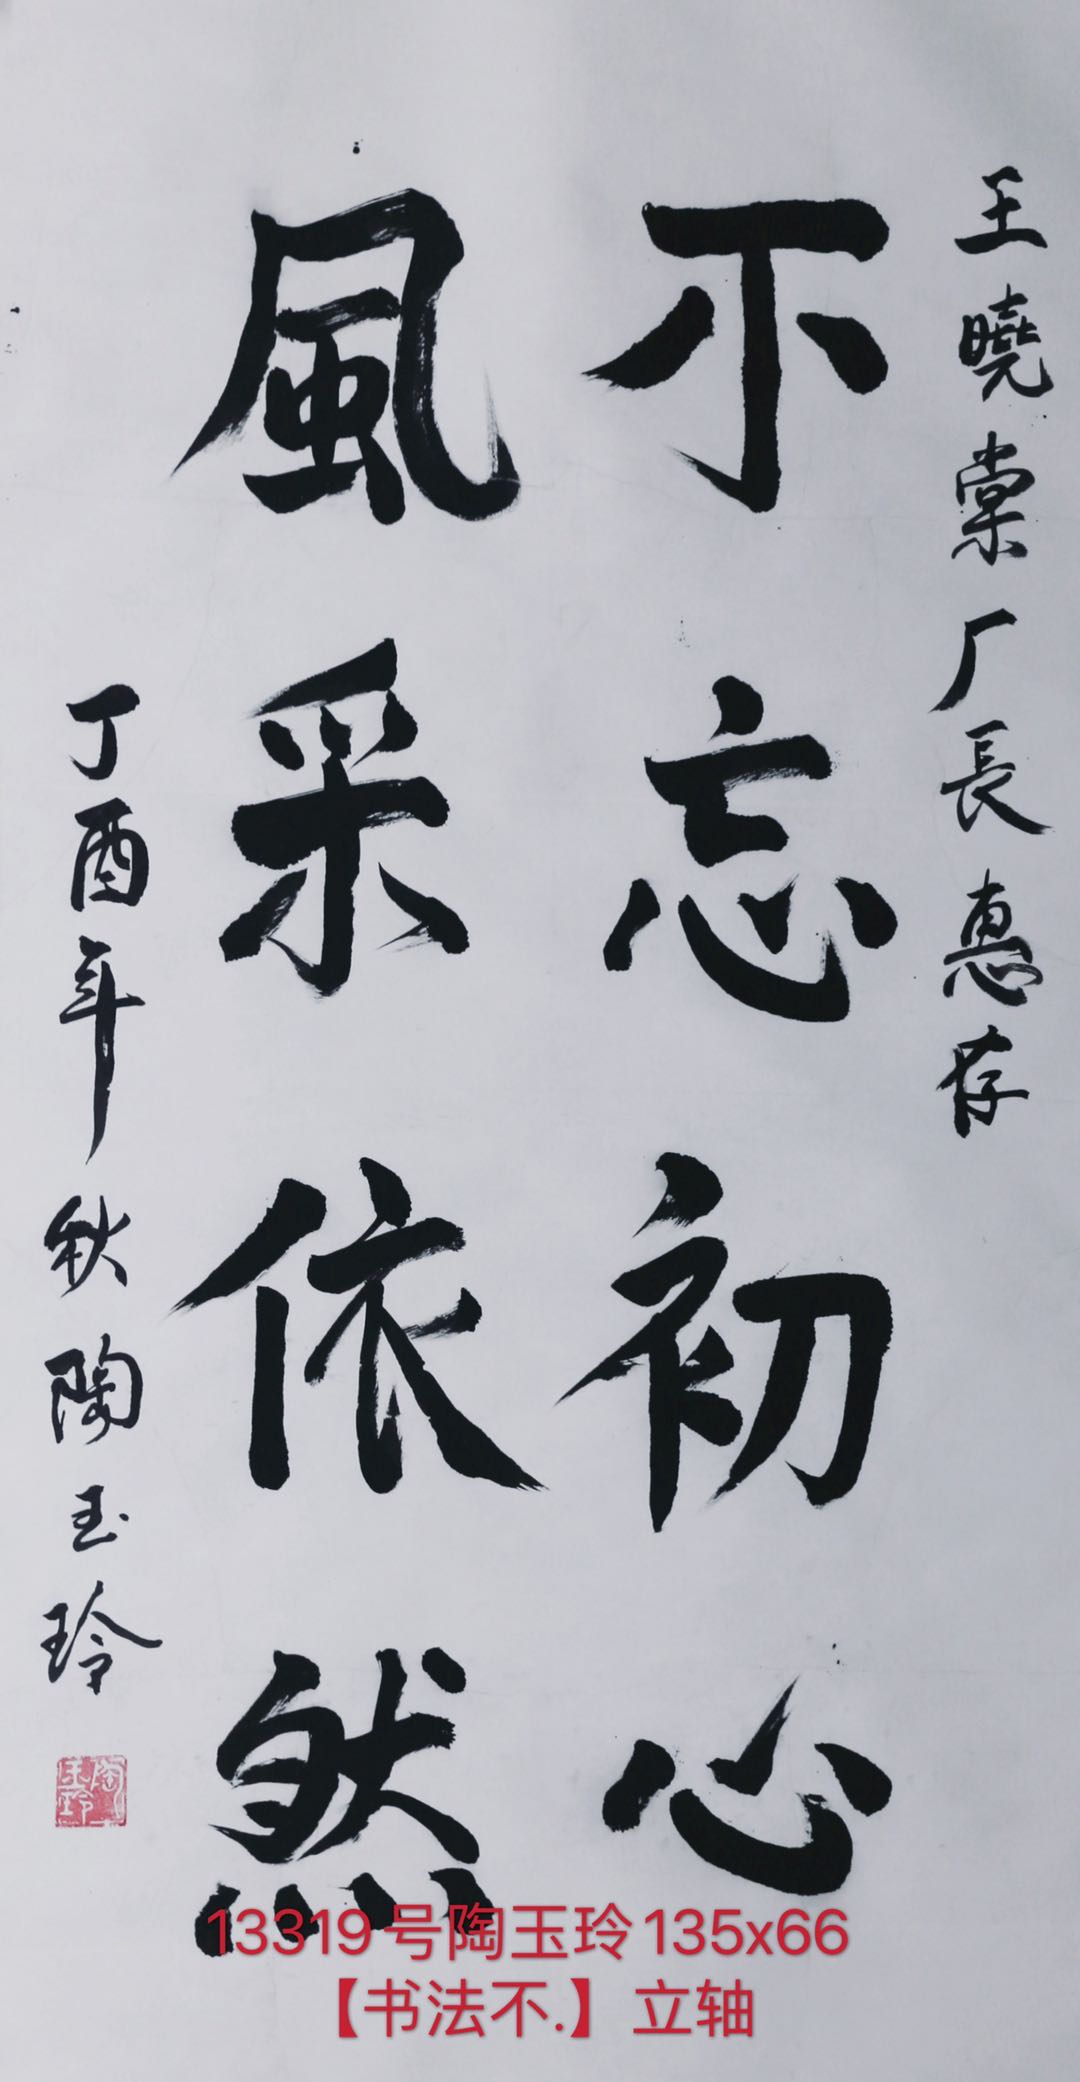 王曉棠厂長惠存
不忘初心
風采依然
丁酉年秋陶玉玲
陶玉玲
13319号陶玉玲135x66
【书法不.】立轴